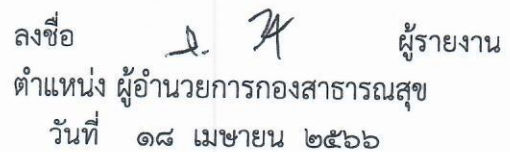 ลงชื่อ ผู้รายงาน
ตำแหน่ง ผู้อำนวยการกองสาธารณสุข
วันที่ ๑๘ เมษายน ๒๕๖๖